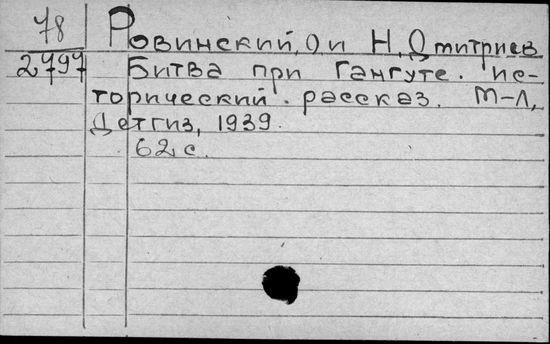 78
Ровинский, О и Н. Дмитриев
2797
Битва при Гангуте. ис-
торический. рассказ. М-Л,
Детгиз, 1939.
62 с.